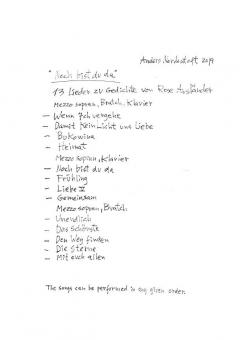 Anders Nordentoft 2019
"Noch bist du da"
13 Lieder zu Gedichte von Rose Ausländer
Mezzo sopran, Bratch, Klavier
- Wenn Ich vergehe
- Damit kein Licht uns Liebe
- Bukowina
- Heimat
Mezzo sopran, Klavier
- Noch bist du da
- Frühling
- Liebe V
- Gemeinsam
Mezzo sopran, Bratch
- Unendlich
- Das Schönste
- Den Weg finden
- Die Sterne
- Mit euch allen
The songs can be performed in any given order.